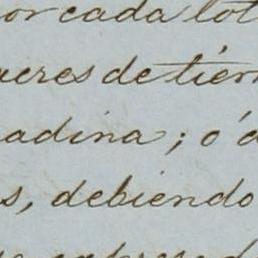 or cada lot
acres de tierr
adina; o á
s, debiendo